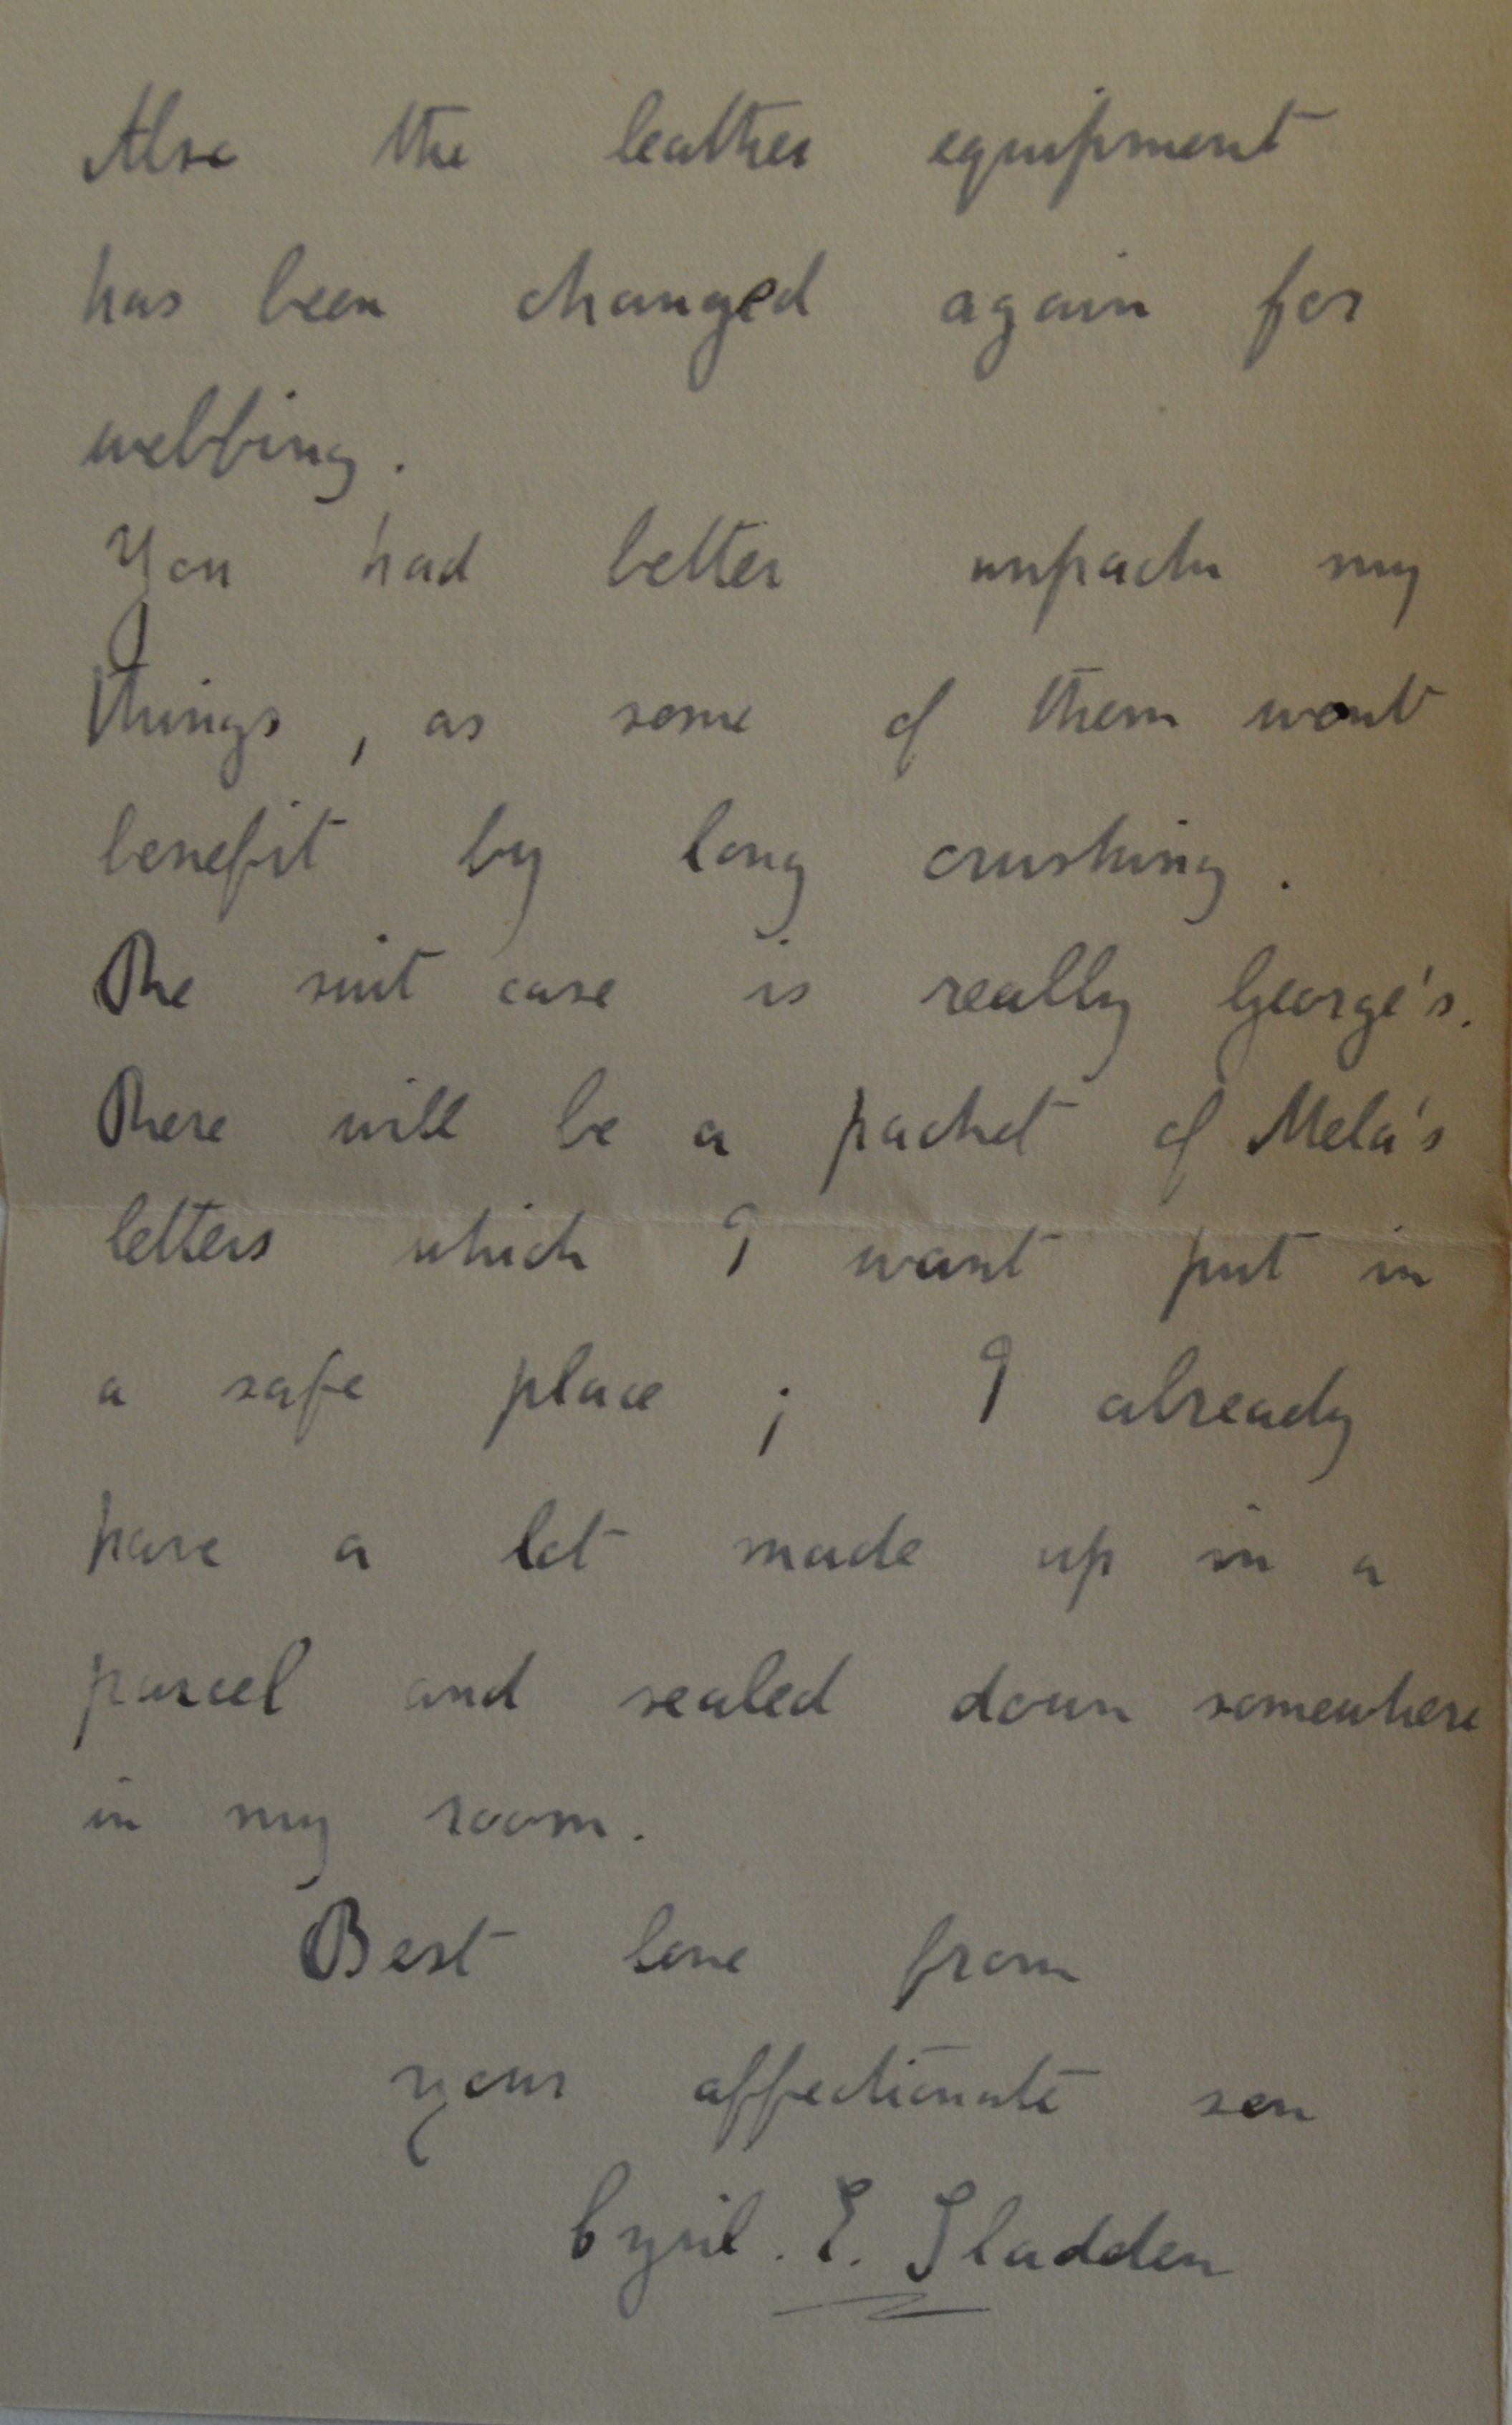 Also the leather equipment
has been changed again for
webbing.
You had better unpack my
things, as some of them wont
benefit by long crushing.
The suit case is really George's.
There will be a packet of Mela's
letters which I want put in
a safe place; I already
have a lot made up in a
parcel and sealed down somewhere
in my room.
Best love from
your affectionate son
Cyril. E. Sladden